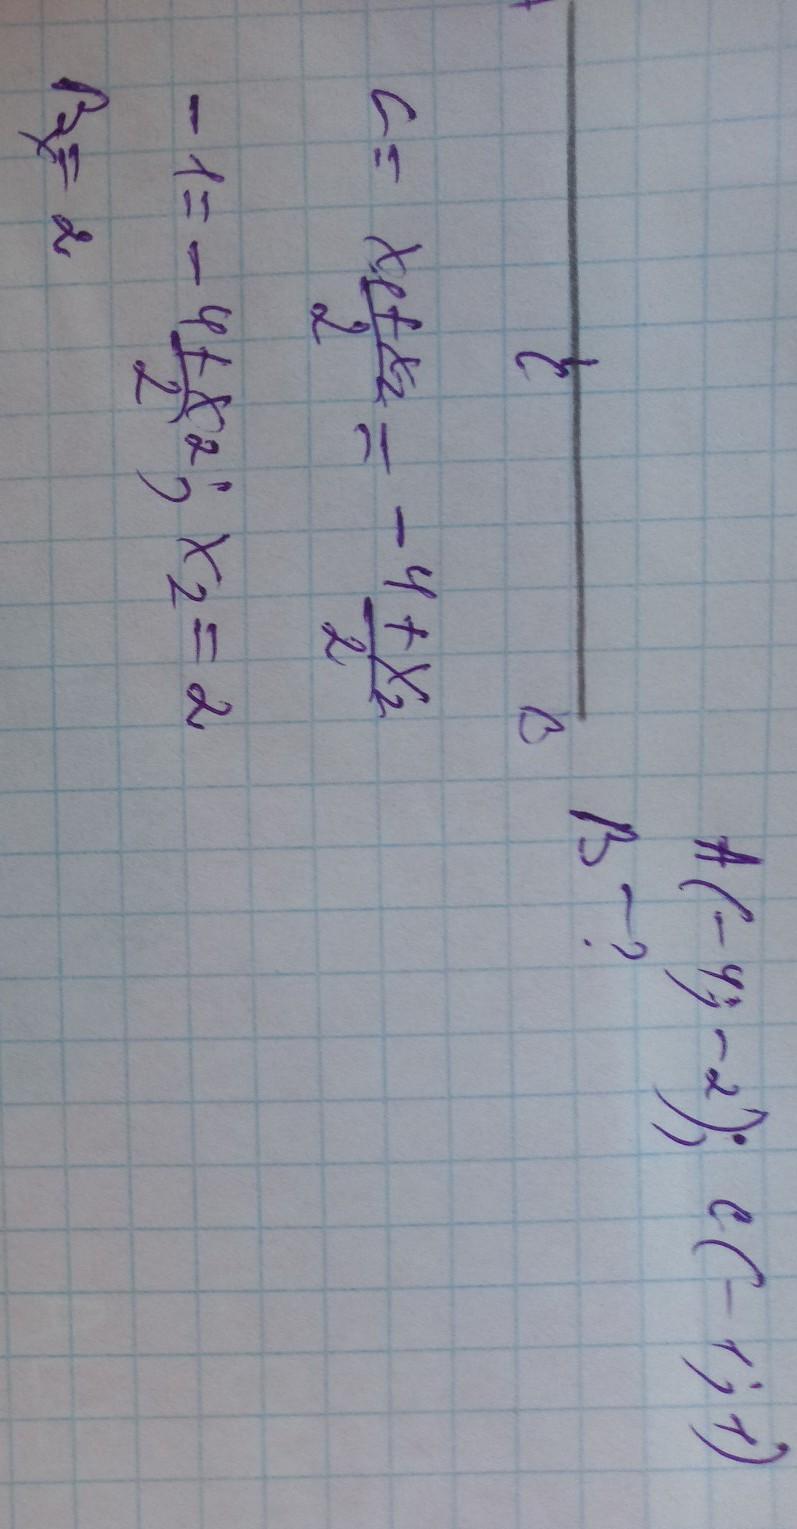 A(-4; -2); C(-1; 1)
B-?
A C B
C = x₁+x₂/2 = -4+x₂/2
-1 = -4+x₂/2; x₂ = 2
Bₓ = 2